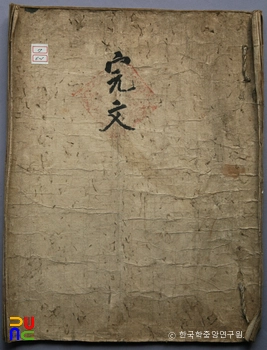 完文
© 한국학중앙연구원